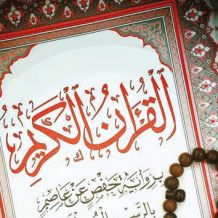 القرآن الكريم
برواية حفص عن عاصم
بالرسم